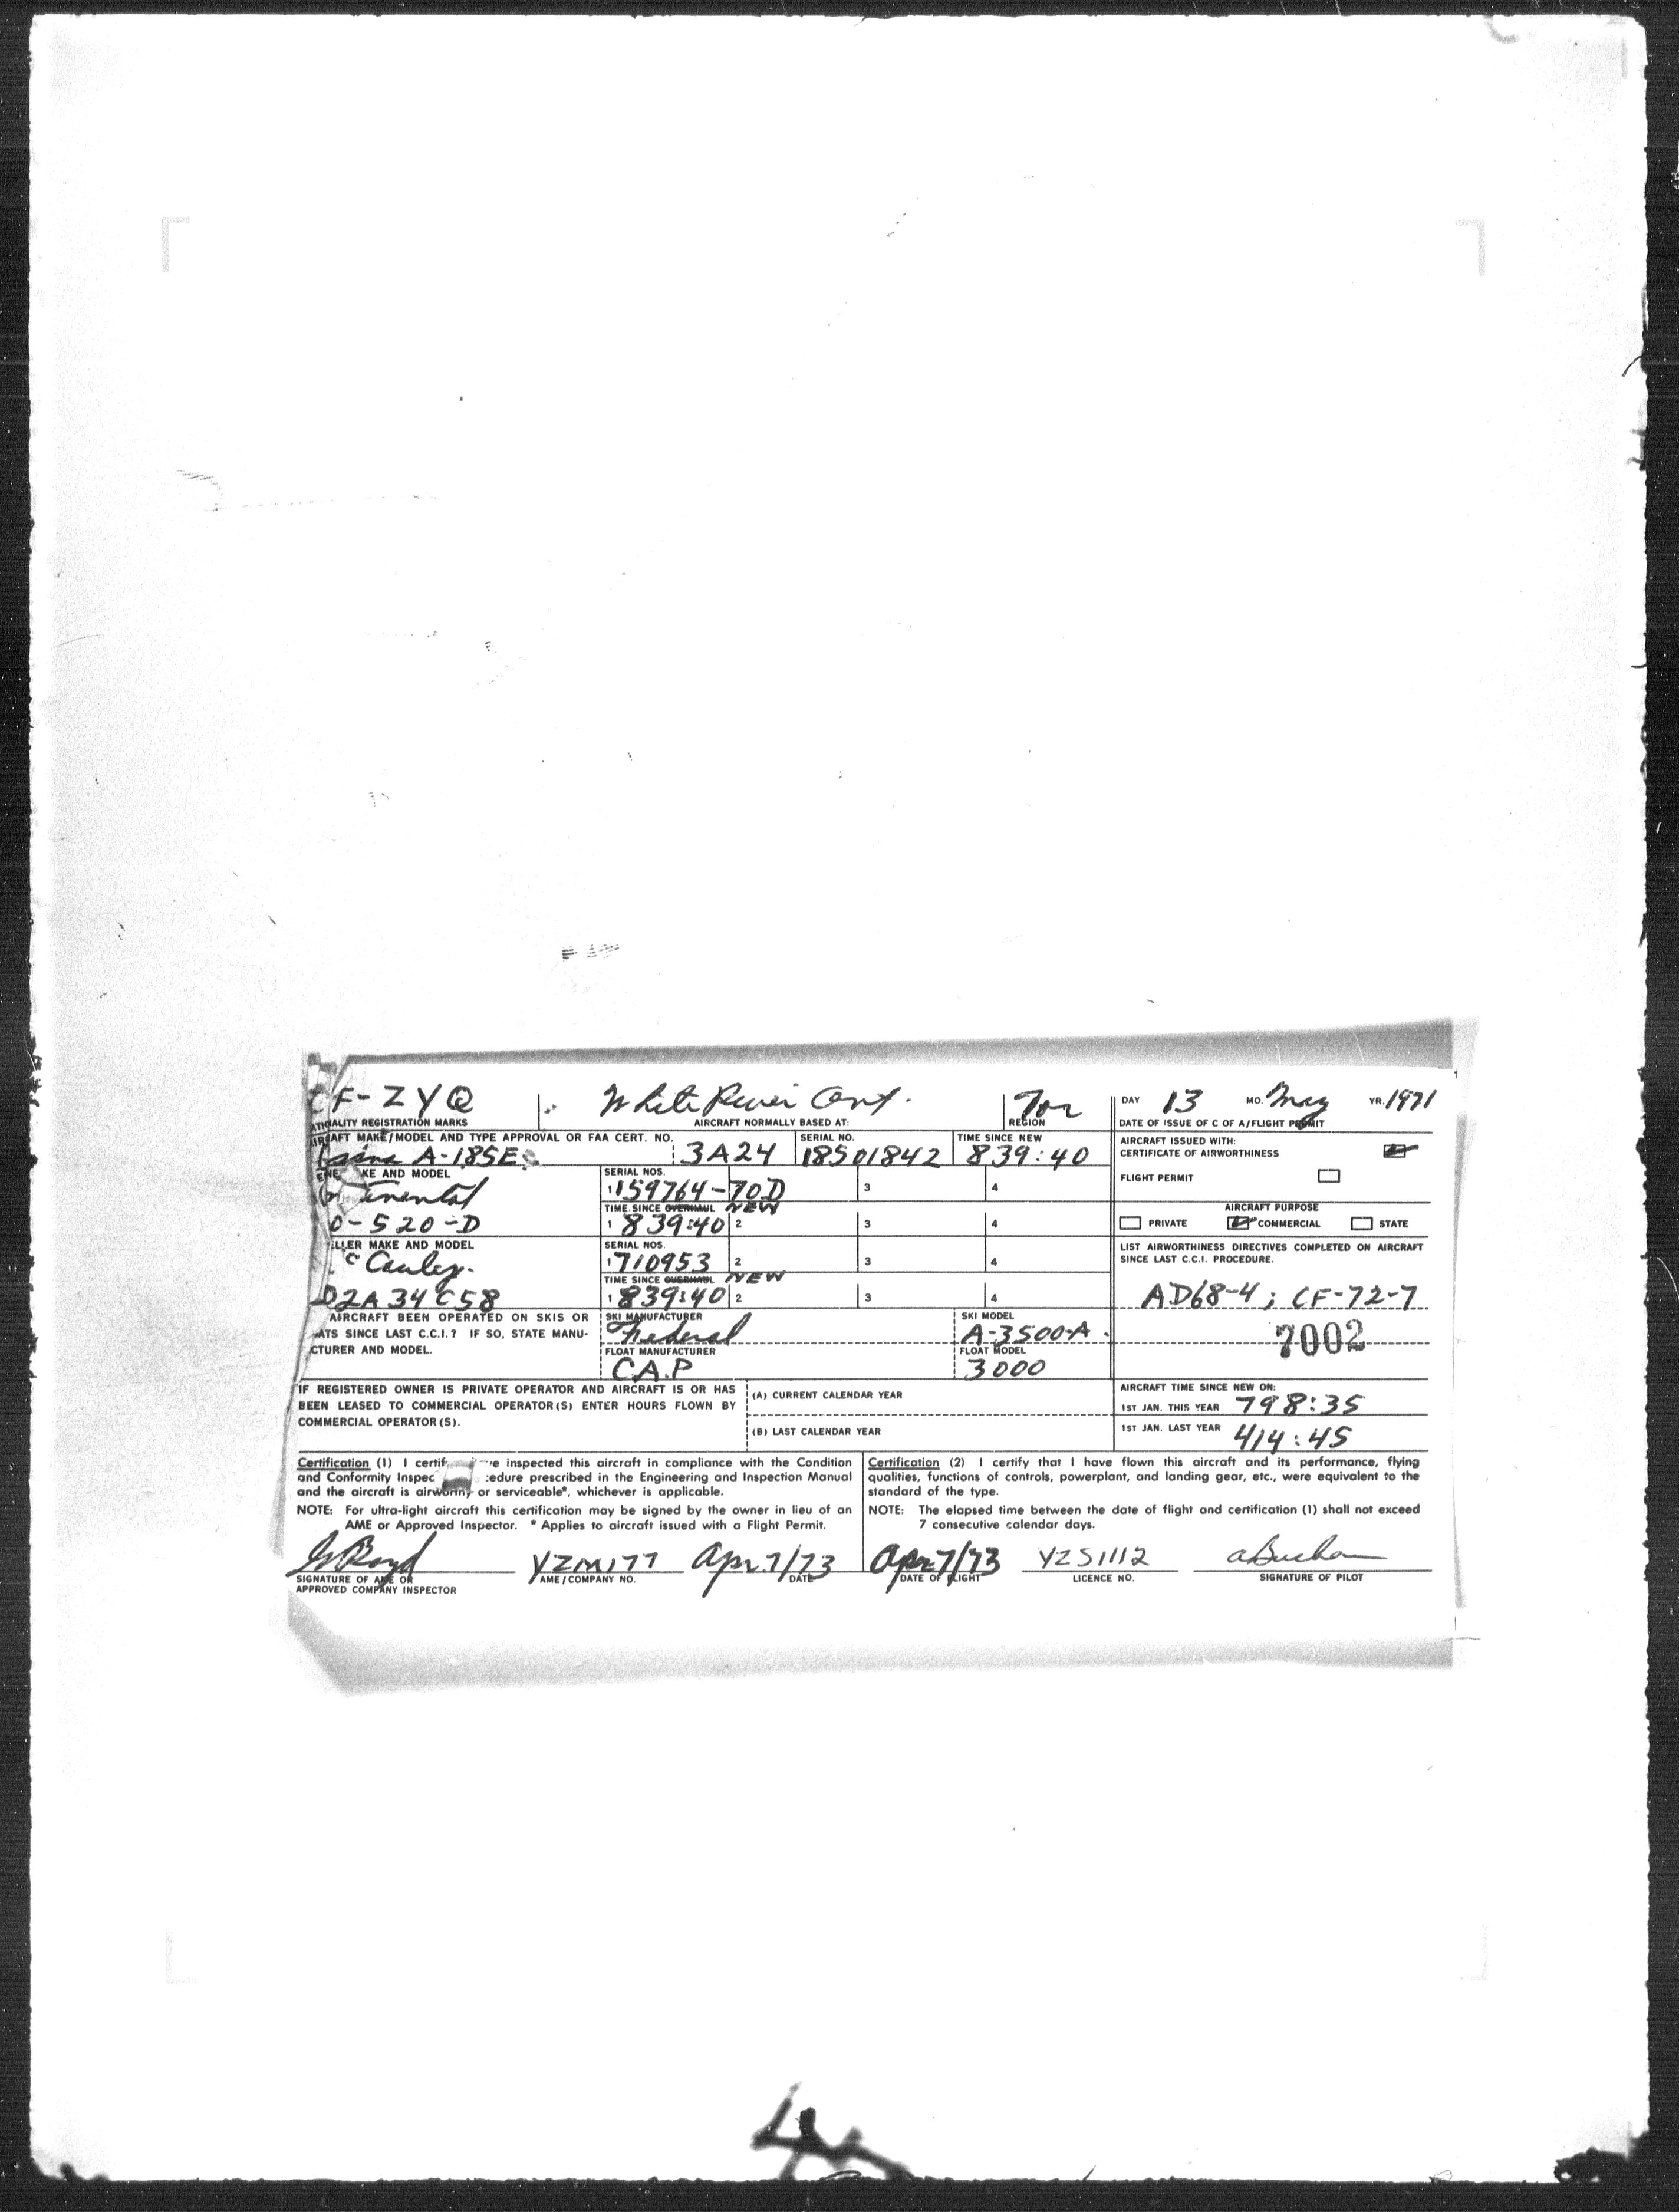 CF-ZYQ White River Ont. Tor DAY 13 MO. May YR. 1971
REGISTRATION MARKS AIRCRAFT NORMALLY BASED AT: REGION DATE OF ISSUE OF C OF A/FLIGHT PERMIT
MAKE/MODEL AND TYPE APPROVAL OR FAA CERT. NO. SERIAL NO. TIME SINCE NEW AIRCRAFT ISSUED WITH:
A-185E 3A24 18501842 839:40 CERTIFICATE OF AIRWORTHINESS
KE AND MODEL SERIAL NOS. FLIGHT PERMIT
1 159764-70D 3 4
TIME SINCE OVERHAUL NEW AIRCRAFT PURPOSE
O-520-D 1 839:40 2 3 4 PRIVATE COMMERCIAL STATE
LLER MAKE AND MODEL SERIAL NOS. LIST AIRWORTHINESS DIRECTIVES COMPLETED ON AIRCRAFT
c Cauley. 1 710953 2 3 4 SINCE LAST C.C.I. PROCEDURE.
TIME SINCE OVERHAUL NEW
D2A34C58 1 839:40 2 3 4 AD68-4; CF-72-7
AIRCRAFT BEEN OPERATED ON SKIS OR SKI MANUFACTURER SKI MODEL
ATS SINCE LAST C.C.I.? IF SO, STATE MANU- Federal A-3500-A. 7002
CTURER AND MODEL. FLOAT MANUFACTURER FLOAT MODEL
C.A.P 3000
IF REGISTERED OWNER IS PRIVATE OPERATOR AND AIRCRAFT IS OR HAS (A) CURRENT CALENDAR YEAR AIRCRAFT TIME SINCE NEW ON:
BEEN LEASED TO COMMERCIAL OPERATOR(S) ENTER HOURS FLOWN BY 1ST JAN. THIS YEAR 798:35
COMMERCIAL OPERATOR(S). (B) LAST CALENDAR YEAR 1ST JAN. LAST YEAR 414:45
Certification (1) I certif ve inspected this aircraft in compliance with the Condition
and Conformity Inspec cedure prescribed in the Engineering and Inspection Manual
and the aircraft is airworthy or serviceable*, whichever is applicable.
NOTE: For ultra-light aircraft this certification may be signed by the owner in lieu of an
AME or Approved Inspector. * Applies to aircraft issued with a Flight Permit.
Certification (2) I certify that I have flown this aircraft and its performance, flying
qualities, functions of controls, powerplant, and landing gear, etc., were equivalent to the
standard of the type.
NOTE: The elapsed time between the date of flight and certification (1) shall not exceed
7 consecutive calendar days.
G Boyd YZM177 Apr.7/73 Apr.7/73 YZS1112
SIGNATURE OF AME OR AME/COMPANY NO. DATE DATE OF FLIGHT LICENCE NO. SIGNATURE OF PILOT
APPROVED COMPANY INSPECTOR